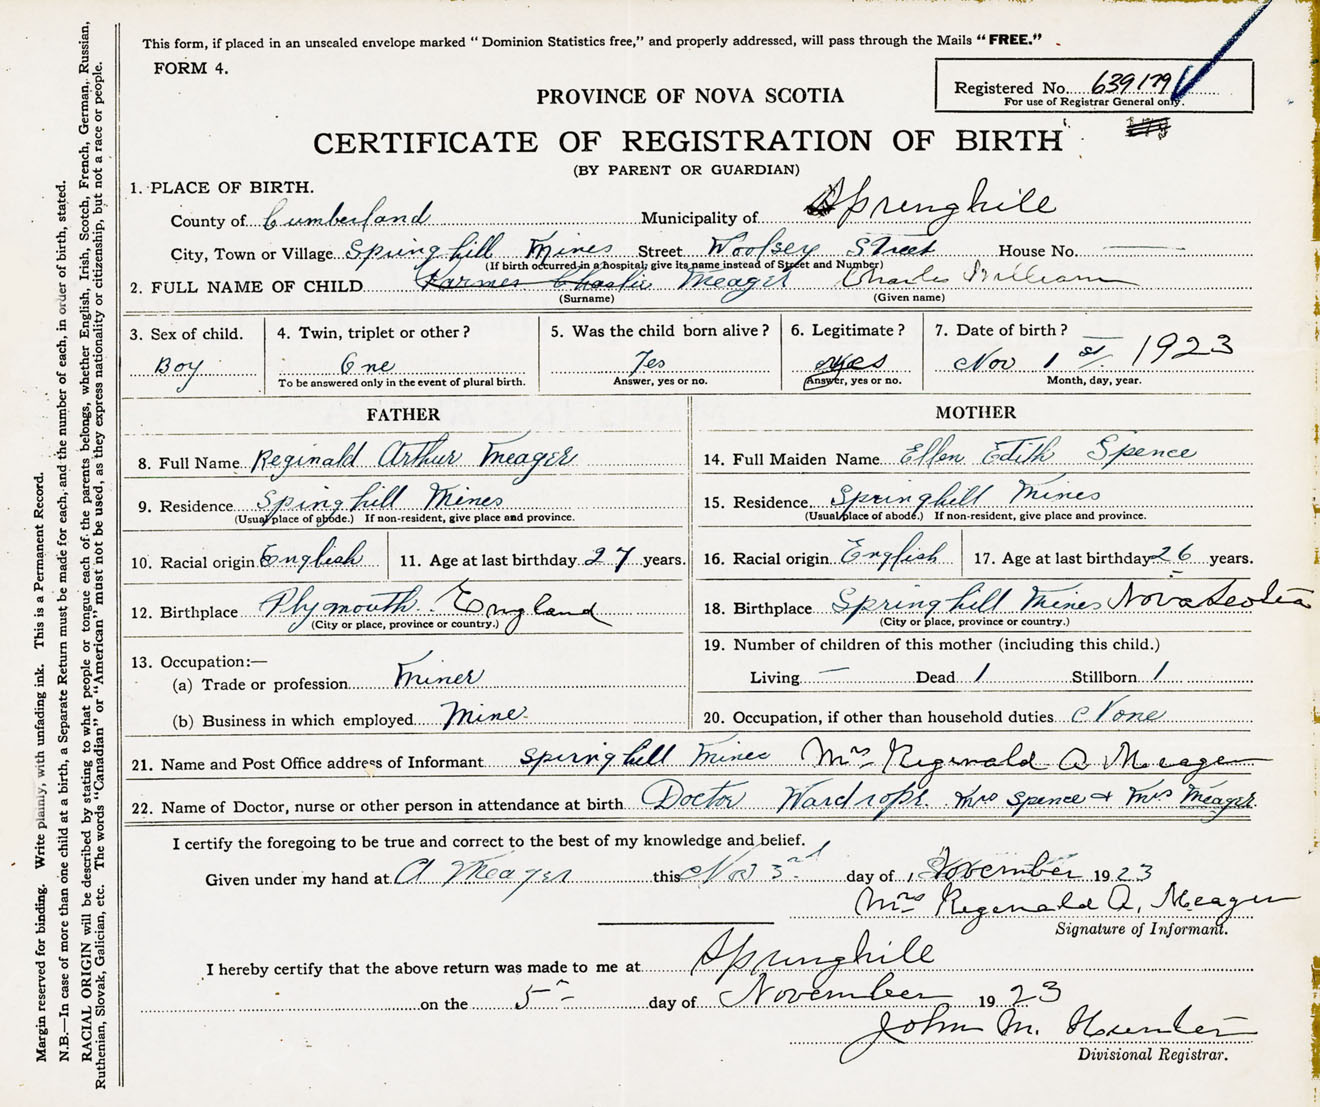 This form, if placed in an unsealed envelope marked "Dominion Statistics free," and properly addressed, will pass through the Mails "FREE."
FORM 4.
Registered No. 639179
For use of Registrar General only.
PROVINCE OF NOVA SCOTIA
CERTIFICATE OF REGISTRATION OF BIRTH
(BY PARENT OR GUARDIAN)
1. PLACE OF BIRTH.
County of Cumberland Municipality of Springhill
City, Town or Village Spinghill Mines Street Woolsey Street House No.
(If birth occurred in a hospital, give its name instead of Street and Number)
2. FULL NAME OF CHILD Meager Charles William
(Surname) (Given name)
3. Sex of child. Boy
4. Twin, triplet or other? One
To be answered only in the event of plural birth.
5. Was the child born alive? Yes
Answer, yes or no.
6. Legitimate? yes
Answer, yes or no.
7. Date of birth? Nov 1st. 1923
Month, day, year.
FATHER
8. Full Name Reginald Arthur Meager
9. Residence Spinghill Mines
(Usual place of abode.) If non-resident, give place and province.
10. Racial origin English 11. Age at last birthday 27 years.
12. Birthplace Plymouth. England
(City or place, province or country.)
13. Occupation:—
(a) Trade or profession Miner
(b) Business in which employed Mine
MOTHER
14. Full Maiden Name Ellen Edith Spence
15. Residence Springhill Mines
(Usual place of abode.) If non-resident, give place and province.
16. Racial origin English 17. Age at last birthday 26 years.
18. Birthplace Springhill Mines Nova Scotia
(City or place, province or country.)
19. Number of children of this mother (including this child.)
Living — Dead 1 Stillborn 1
20. Occupation, if other than household duties None
21. Name and Post Office address of Informant Springhill Mines Mrs Reginald A Meager
22. Name of Doctor, nurse or other person in attendance at birth Doctor Wardrope. Mrs Spence & Mrs Meager
I certify the foregoing to be true and correct to the best of my knowledge and belief.
Given under my hand at A Meager this Nov 3rd day of November 1923
Mrs Reginald A. Meager
Signature of Informant.
I hereby certify that the above return was made to me at Springhill
on the 5th day of November 1923
John M. Hunter
Divisional Registrar.
Margin reserved for binding. Write plainly, with unfading ink. This is a Permanent Record.
N.B.—In case of more than one child at a birth, a Separate Return must be made for each, and the number of each, in order of birth, stated.
RACIAL ORIGIN will be described by stating to what people or tongue each of the parents belongs, whether English, Irish, Scotch, French, German, Russian,
Ruthenian, Slovak, Galician, etc. The words "Canadian" or "American" must not be used, as they express nationality or citizenship, but not a race or people.